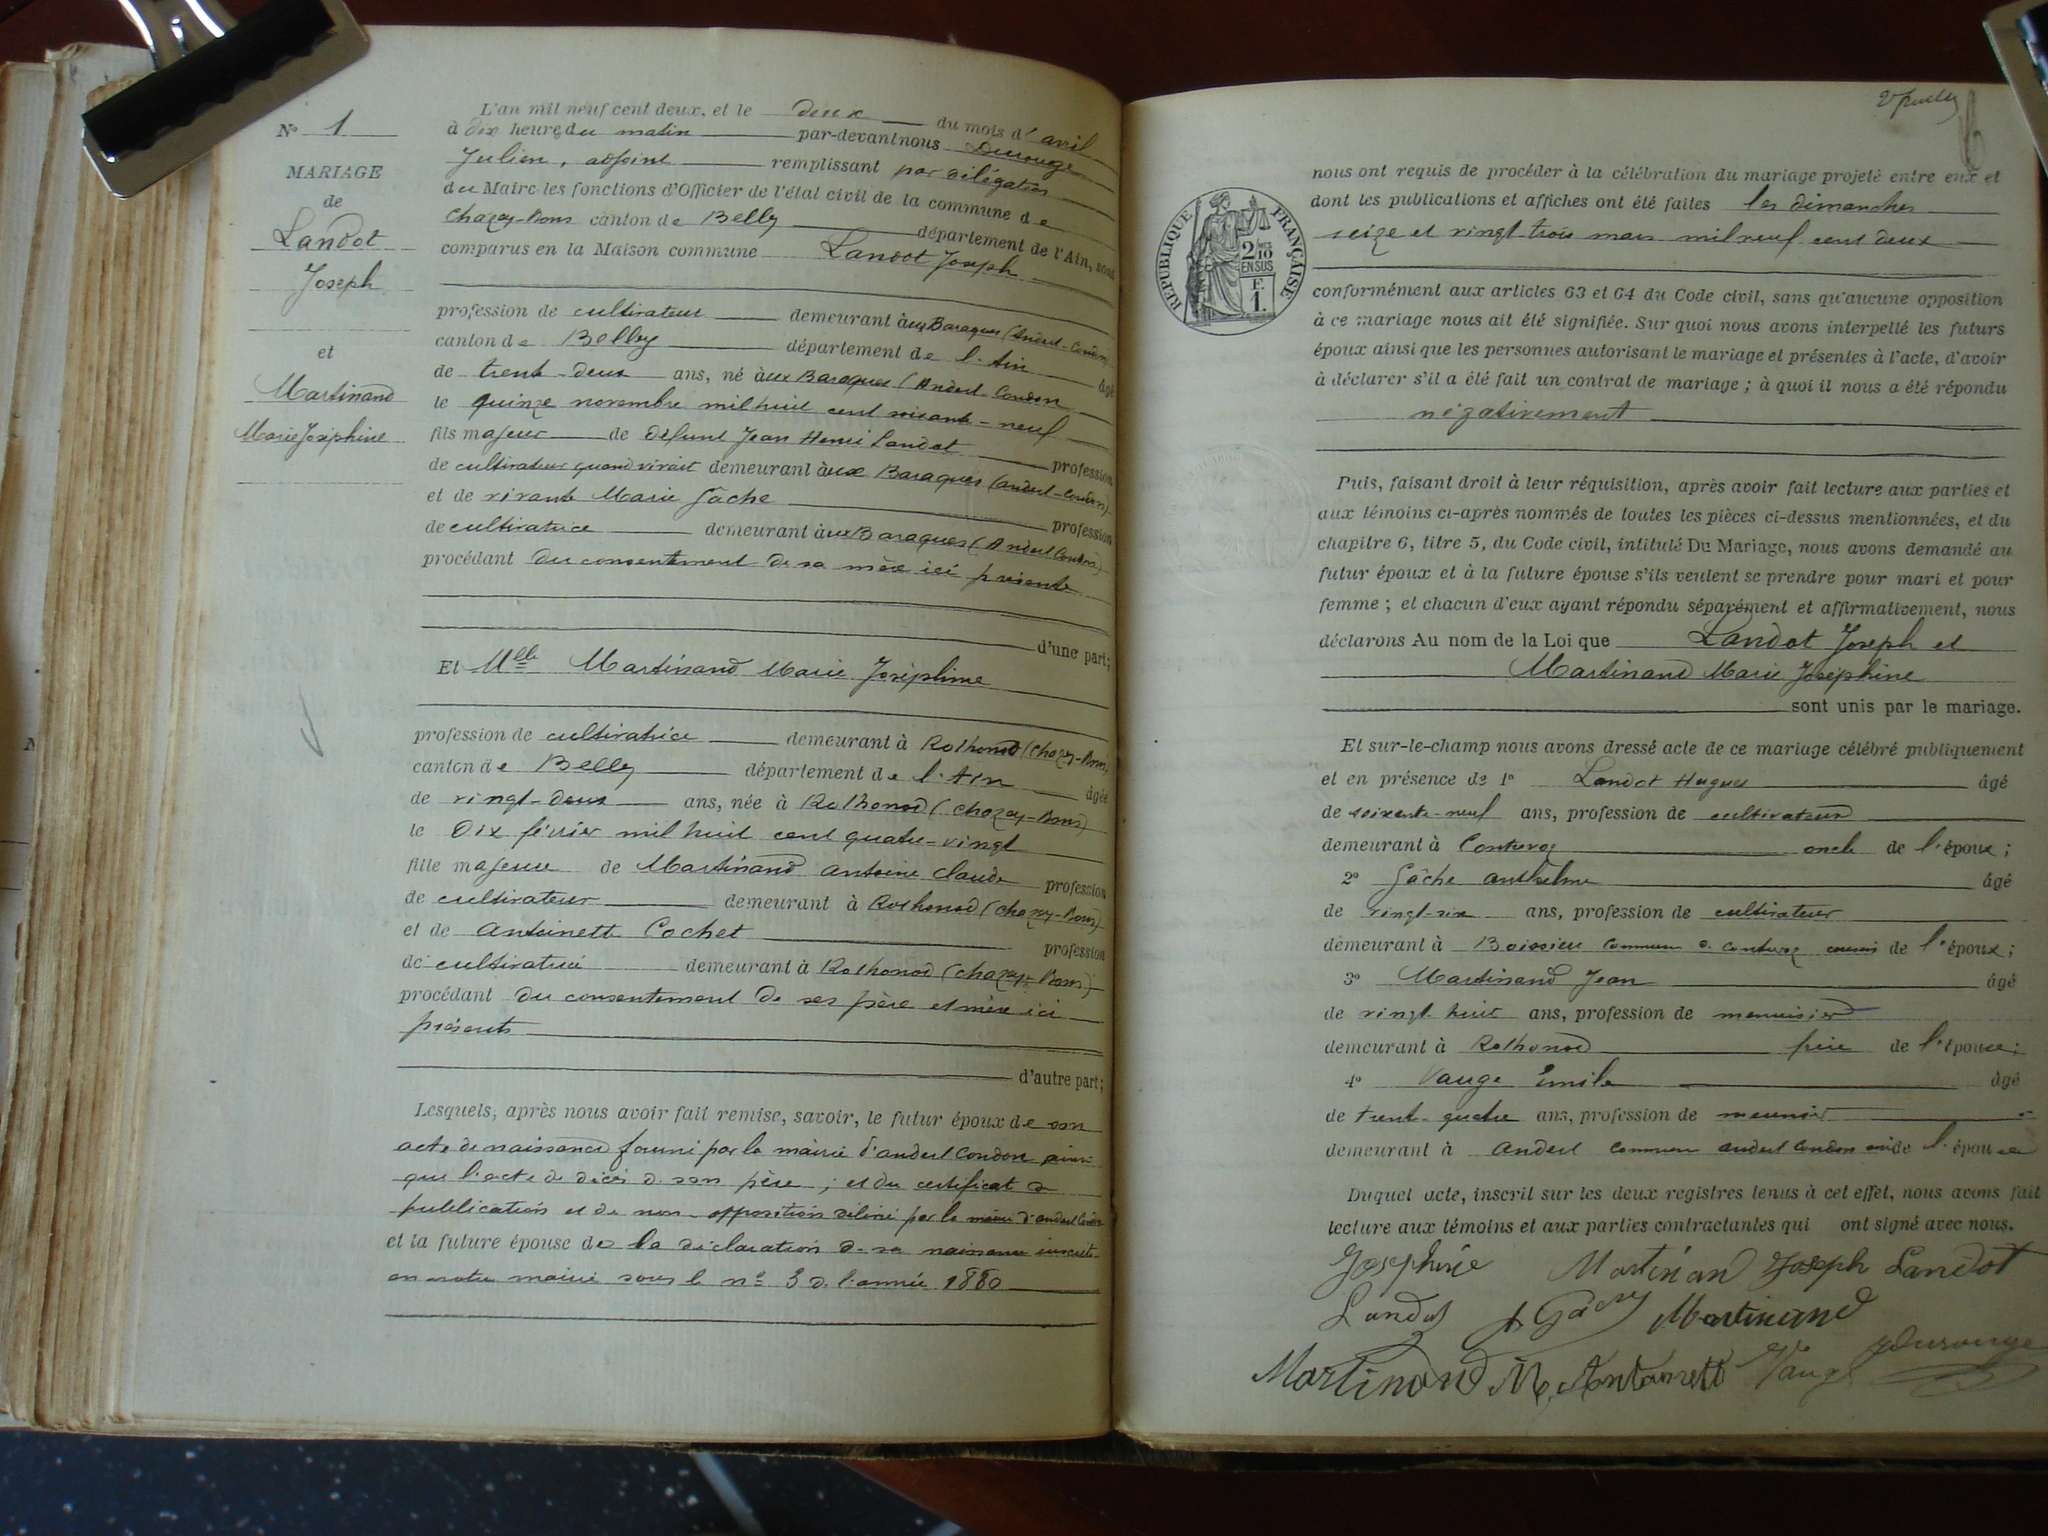 N° 1
MARIAGE
de
Landot
Joseph
et
Martinand
Marie Joséphine
L'an mil neuf cent deux, et le deux du mois d'avril
à dix heures du matin par-devant nous Durouge
Julien, adjoint remplissant par délégation
du Maire les fonctions d'Officier de l'état civil de la commune de
Chazey-Bons canton de Belley département de l'Ain, sont
comparus en la Maison commune Landot Joseph
profession de cultivateur demeurant aux Baraques (Andert-Condon)
canton de Belley département de l'Ain âgé
de trente-deux ans, né aux Baraques (Andert-Condon
le quinze novembre mil huit cent soixante-neuf
fils majeur de défunt Jean Henri Landot profession
de cultivateur quand vivait demeurant aux Baraques (Andert-Condon)
et de vivante Marie Gâche profession
de cultivatrice demeurant aux Baraques (Andert Condon)
procédant du consentement de sa mère ici présente
d'une part;
Et Mlle Martinand Marie Joséphine
profession de cultivatrice demeurant à Rothonod (Chazey-Bons)
canton de Belley département de l'Ain âgée
de vingt-deux ans, née à Rothonod (Chazey-Bons)
le dix février mil huit cent quatre-vingt
fille majeure de Martinand Antoine Claude profession
de cultivateur demeurant à Rothonod (Chazey-Bons)
et de Antoinette Cochet profession
de cultivatrice demeurant à Rothonod (Chazey-Bons)
procédant du consentement de ses père et mère ici
présents
d'autre part;
Lesquels, après nous avoir fait remise, savoir, le futur époux de son
acte de naissance fourni par la mairie d'Andert Condon ainsi
que l'acte de décès de son père ; et du certificat de
publications et de non-opposition délivré par la mairie d'Andert Condon
et la future épouse de la déclaration de sa naissance inscrite
en notre mairie sous le n° 3 de l'année 1880
RÉPUBLIQUE FRANÇAISE
2/10
EN SUS
F.
1.
nous ont requis de procéder à la célébration du mariage projeté entre eux et
dont les publications et affiches ont été faites les dimanches
seize et vingt-trois mars mil neuf cent deux
conformément aux articles 63 et 64 du Code civil, sans qu'aucune opposition
à ce mariage nous ait été signifiée. Sur quoi nous avons interpellé les futurs
époux ainsi que les personnes autorisant le mariage et présentes à l'acte, d'avoir
à déclarer s'il a été fait un contrat de mariage ; à quoi il nous a été répondu
négativement
Puis, faisant droit à leur réquisition, après avoir fait lecture aux parties et
aux témoins ci-après nommés de toutes les pièces ci-dessus mentionnées, et du
chapitre 6, titre 5, du Code civil, intitulé Du Mariage, nous avons demandé au
futur époux et à la future épouse s'ils veulent se prendre pour mari et pour
femme ; et chacun d'eux ayant répondu séparément et affirmativement, nous
déclarons Au nom de la Loi que Landot Joseph et
Martinand Marie Joséphine
sont unis par le mariage.
Et sur-le-champ nous avons dressé acte de ce mariage célébré publiquement
et en présence de 1° Landot Hugues âgé
de soixante-neuf ans, profession de cultivateur
demeurant à Contrevoz oncle de l'époux;
2° Gâche Anthelme âgé
de vingt-six ans, profession de cultivateur
demeurant à Boissieu commune de Contrevoz cousin de l'époux;
3° Martinand Jean âgé
de vingt huit ans, profession de menuisier
demeurant à Rothonod frère de l'épouse;
4° Vauge Emile âgé
de trente-quatre ans, profession de meunier
demeurant à Andert commune Andert Condon de l'épouse
Duquel acte, inscrit sur les deux registres tenus à cet effet, nous avons fait
lecture aux témoins et aux parties contractantes qui ont signé avec nous.
Joséphine Martinand Joseph Landot
Landot A Gâche Martinand
Martinand M Antoinette Vauge JDurouge